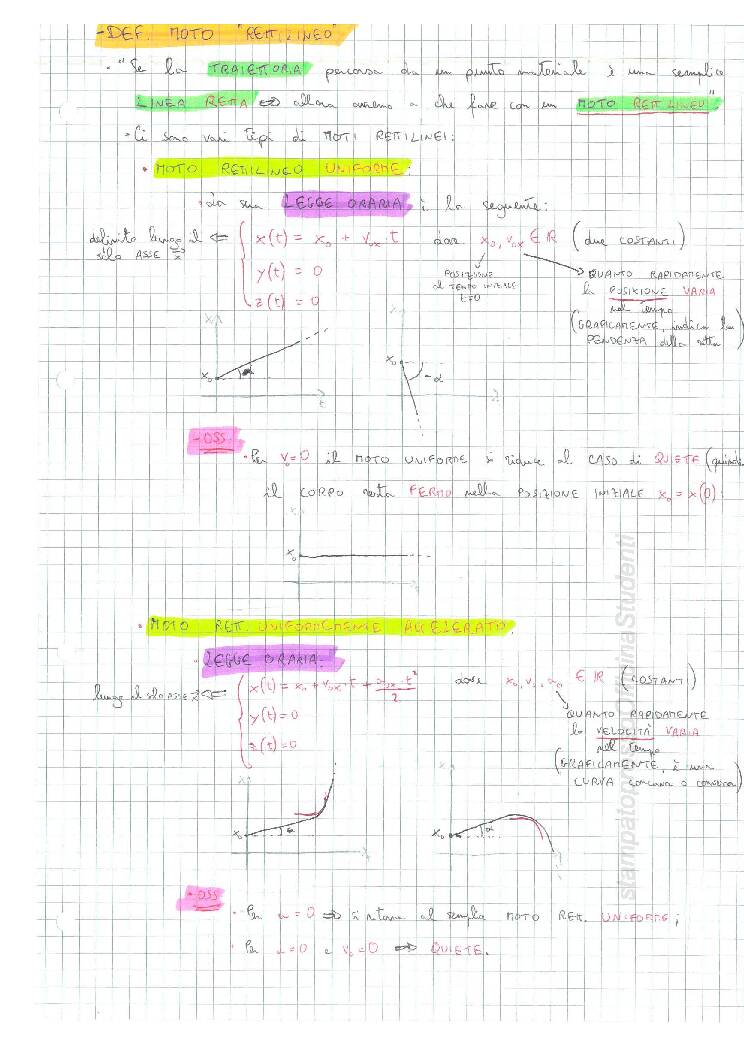 - DEF. MOTO "RETTILINEO"
· "Se la TRAIETTORIA percorsa da un punto materiale è una semplice
LINEA RETTA ⇔ allora avremo a che fare con un MOTO RETTILINEO"
· Ci sono vari tipi di MOTI RETTILINEI:
· MOTO RETTILINEO UNIFORME:
· La sua LEGGE ORARIA è la seguente:
definito lungo il ⇐ x(t) = x₀ + v₀ₓ · t dove x₀, v₀ₓ ∈ ℝ (due COSTANTI)
solo ASSE x
y(t) = 0
z(t) = 0
POSIZIONE
al TEMPO INIZIALE
t=0
QUANTO RAPIDAMENTE
la POSIZIONE VARIA
nel tempo
(GRAFICAMENTE, indica la
PENDENZA della retta
x
x₀ α
t
x₀ -α
- OSS.
· Per v₀=0 il MOTO UNIFORME si riduce al CASO di QUIETE (quindi
il CORPO resta FERMO nella POSIZIONE INIZIALE x₀ = x(0).
x₀
· MOTO RETT. UNIFORMEMENTE ACCELERATO.
· LEGGE ORARIA:
lungo il solo ASSE x ⇐ x(t) = x₀ + v₀ₓ · t + a₀ₓ · t² / 2 dove x₀, v₀, a₀ ∈ ℝ (COSTANTI)
y(t) = 0
z(t) = 0
QUANTO RAPIDAMENTE
la VELOCITÀ VARIA
nel tempo
(GRAFICAMENTE, è una
CURVA concava o convessa)
x₀ α
x₀ α
- OSS
· Per a = 0 ⇒ si ritorna al semplice MOTO RETT. UNIFORME;
· Per a=0 e v₀=0 ⇒ QUIETE.
stampato presso Officina Studenti